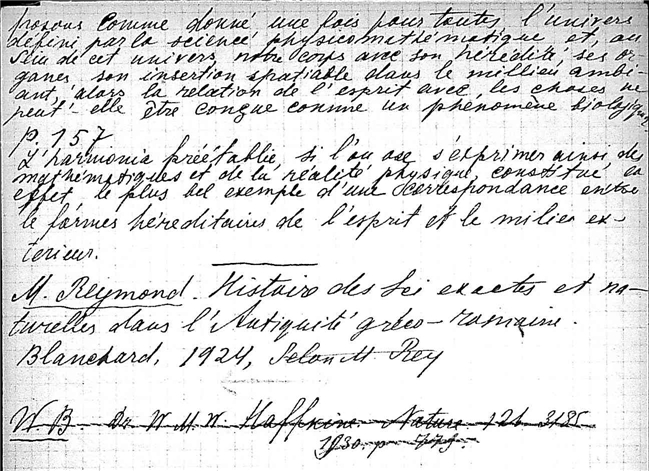 posons comme donné une fois pour toutes l'univers
défini par la science physicomathématique et, au
sein de cet univers, notre corps avec son hérédité, ses or-
ganes son insertion spatiable dans le millieu ambi-
ant, alors la relation de l'esprit avec les choses ne
peut-elle être conçue comme un phénomène biologique
p. 157
L'harmonia préétablie, si l'on ose s'exprimer ainsi, des
mathématiques et de la réalité physique, constitue en
effet le plus bel exemple d'une correspondance entre
le formes héréditaires de l'esprit et le milieu ex-
terieur.
M. Reymond. Histoire des Sci exactes et na-
turelles dans l'Antiquité gréco-romaine.
Blanchard, 1924, Selon M Rey
W B Dr W. M. W. Haffkine Nature 126 3185
1930. p